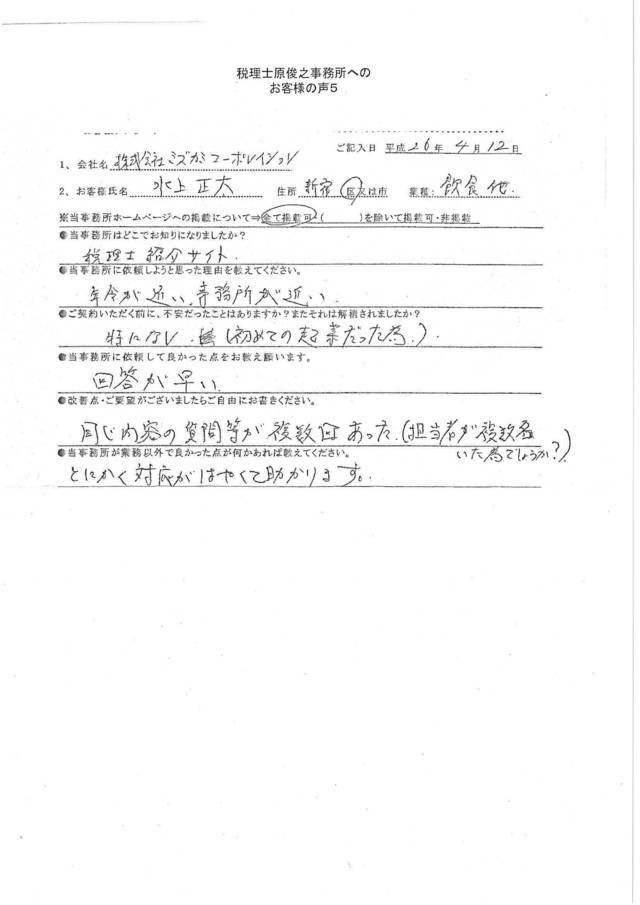 税理士原俊之事務所への
お客様の声5
ご記入日 平成26年4月12日
1、会社名 株式会社ミズカミコーポレイション
2、お客様氏名 水上正大 住所 新宿 区又は市 業種: 飲食他.
※当事務所ホームページへの掲載について⇒全て掲載可・( )を除いて掲載可・非掲載
●当事務所はどこでお知りになりましたか?
税理士紹介サイト.
●当事務所に依頼しようと思った理由を教えてください。
年令が近い、事務所が近い.
●ご契約いただく前に、不安だったことはありますか?またそれは解消されましたか?
特にない.(初めての起業だった為.).
●当事務所に依頼して良かった点をお教え願います。
回答が早い.
●改善点・ご要望がございましたらご自由にお書きください。
同じ内容の質問等が複数回あった.(担当者が複数名
いた為でしょうか?)
●当事務所が業務以外で良かった点が何かあれば教えてください。
とにかく対応がはやくて助かります。